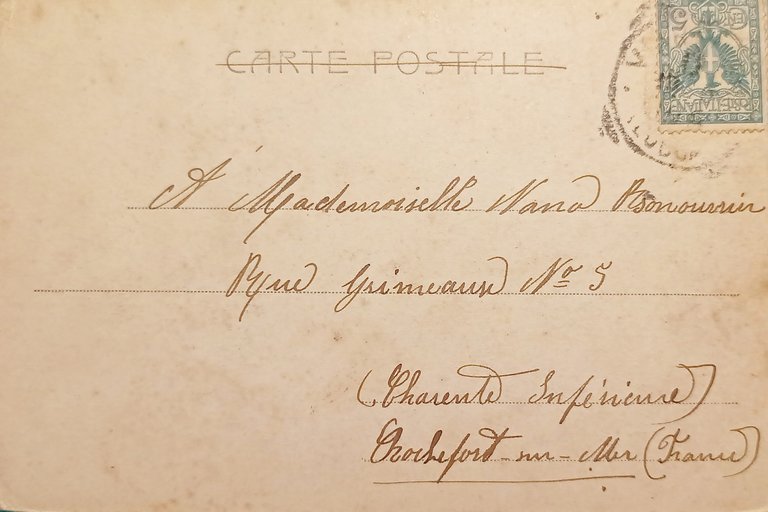 CARTE POSTALE
A Mademoiselle Nana
Rue Grimeaux No 5
(Charente Inférieure)
Rochefort-sur-Mer (France)